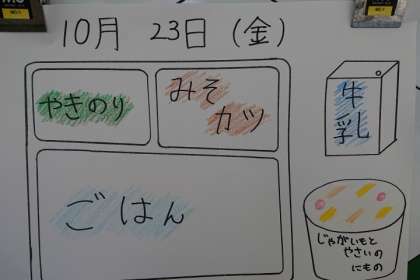 10月 23日 (金)
やきのり
みそ
カツ
牛
乳
ごはん
じゃがいもと
やさいの
にもの